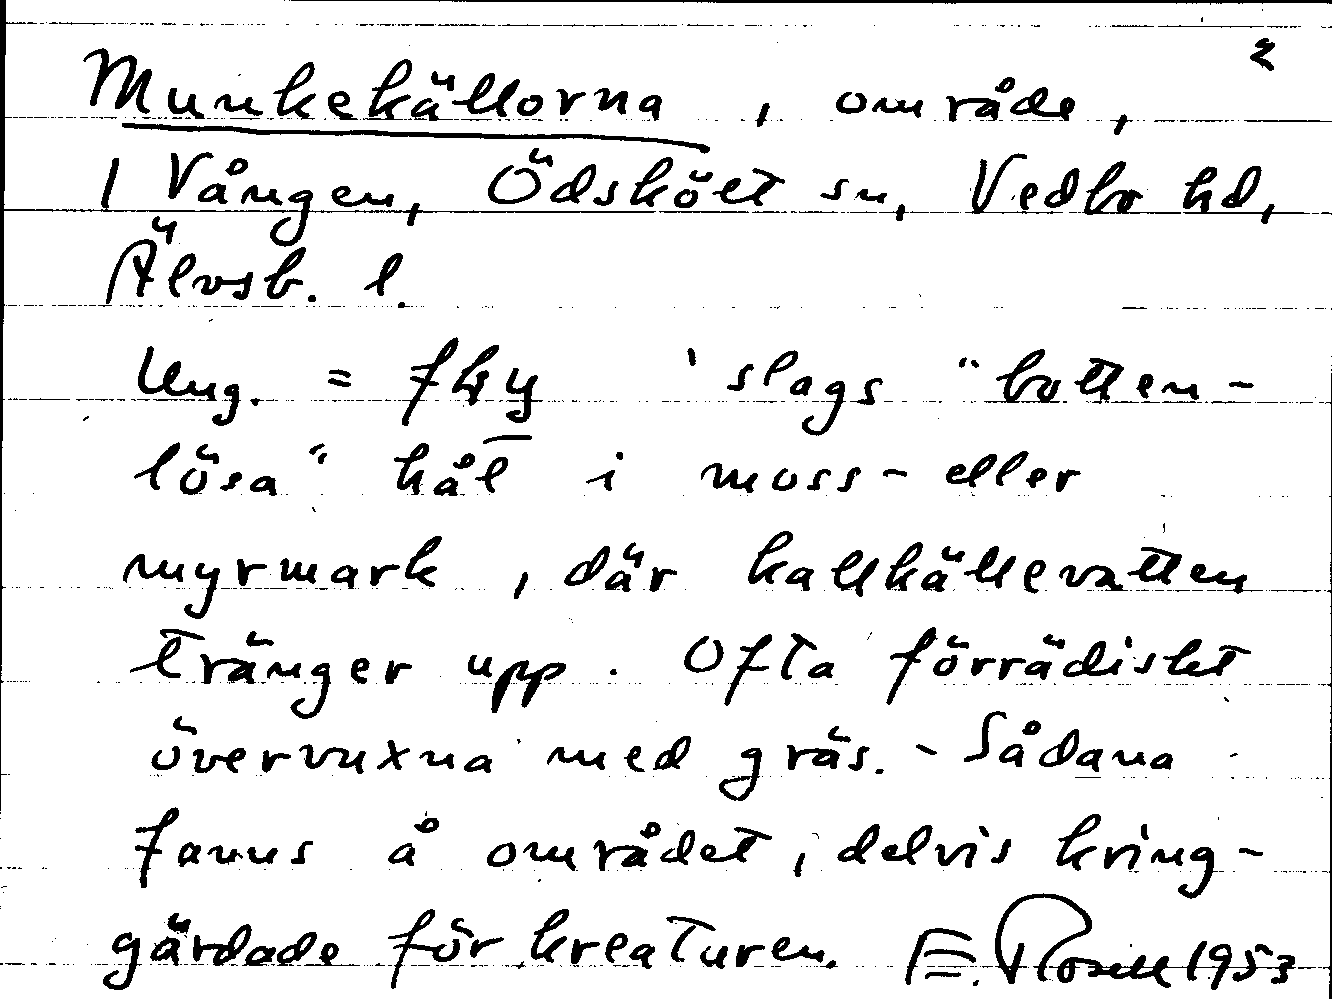 2
Munkekällorna, område,
1 Vången, ÖdsköLt sn, Vedbo hd,
Älvsb. l.
Ung. = fly 'slags "botten-
lösa" hål i moss- eller
myrmark, där kallkällevatten
tränger upp. Ofta förrädiskt
övervuxna med gräs. - Sådana
fanns å området, delvis kring-
gärdade för kreaturen. E. Rosell 1953